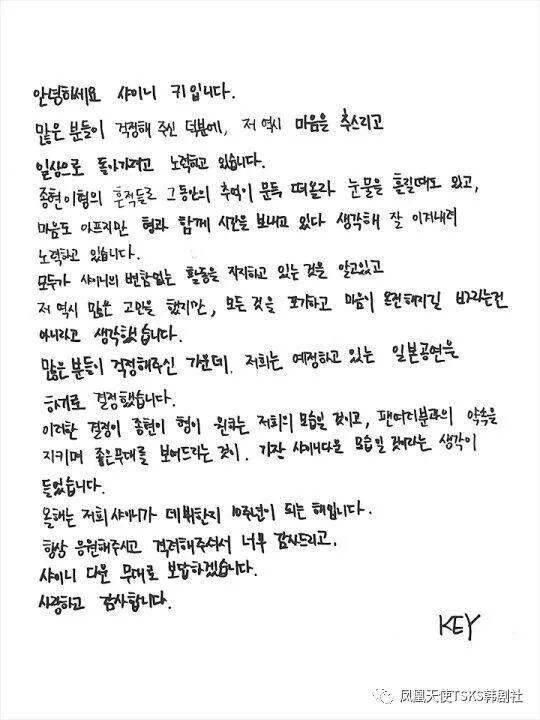 안녕하세요 샤이니 키입니다.
많은 분들이 걱정해 주신 덕분에, 저 역시 마음을 추스리고
일상으로 돌아가려고 노력하고 있습니다.
종현이형의 흔적들로 그동안의 추억이 문득 떠올라 눈물을 흘릴때도 있고,
마음도 아프지만 형과 함께 시간을 보내고 있다 생각해 잘 이겨내려
노력하고 있습니다.
모두가 샤이니의 변함없는 활동을 지지하고 있는 것을 알고있고
저 역시 많은 고민을 했지만, 모든 것을 포기하고 마음이 온전해지길 바라는건
아니라고 생각했습니다.
많은 분들이 걱정해주신 가운데, 저희는 예정하고 있는 일본공연을
하기로 결정했습니다.
이러한 결정이 종현이 형이 원하는 저희의 모습일 것이고, 팬여러분과의 약속을
지키며 좋은무대를 보여드리는 것이, 가장 샤이니다운 모습일 것이라는 생각이
들었습니다.
올해는 저희 샤이니가 데뷔한지 10주년이 되는 해입니다.
항상 응원해주시고 격려해주셔서 너무 감사드리고,
샤이니 다운 무대로 보답하겠습니다.
사랑하고 감사합니다.
KEY
凤凰天使TSKS韩剧社